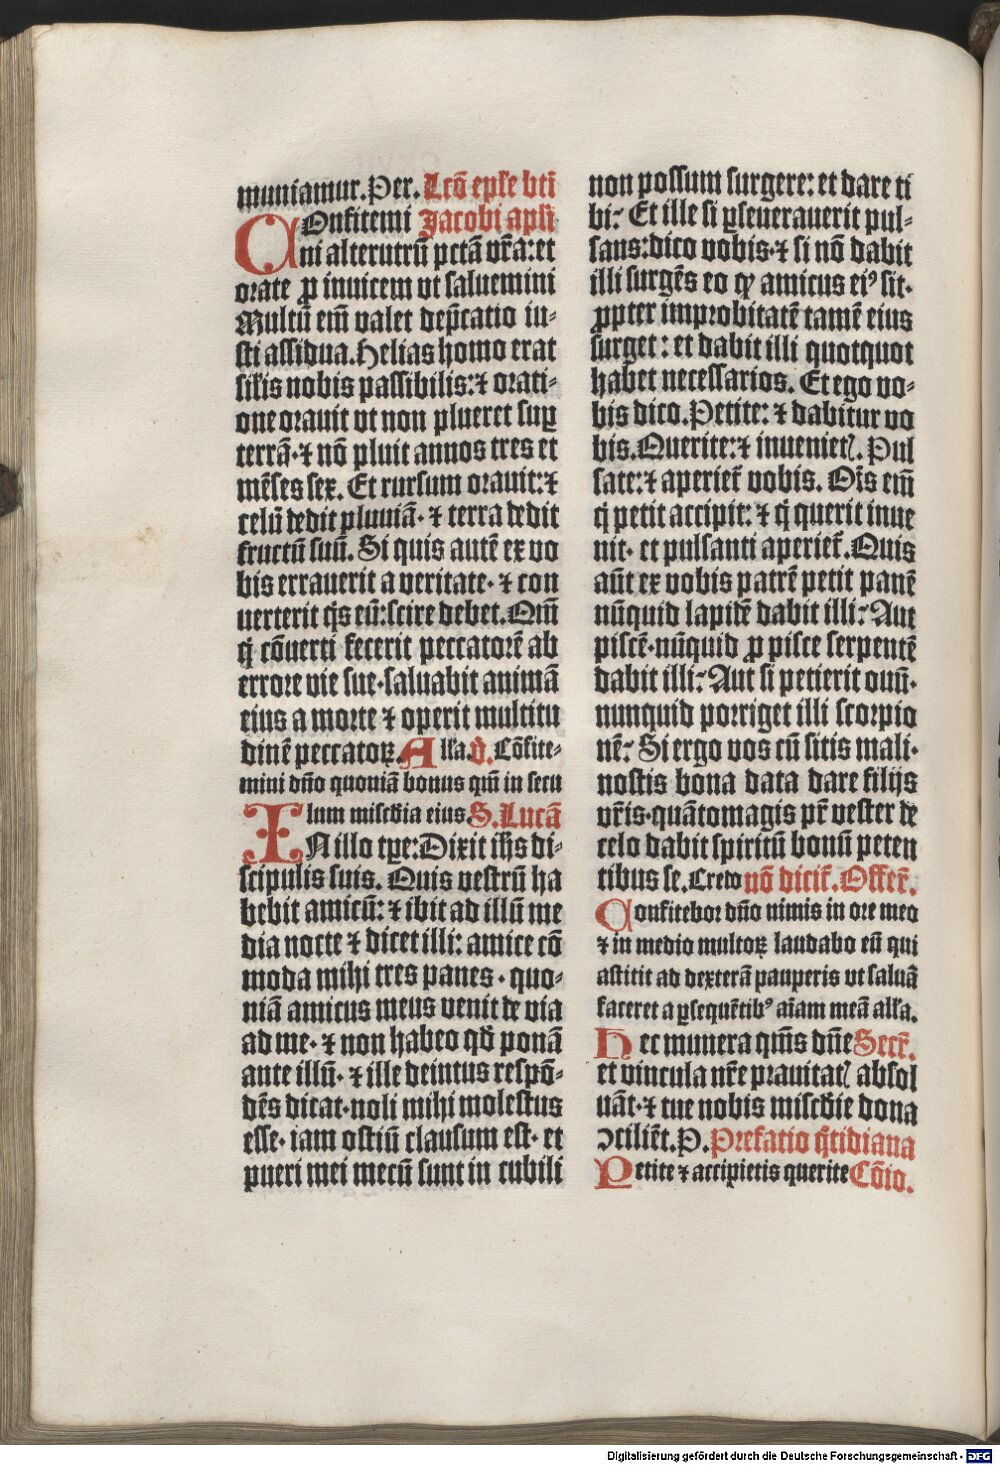 muniamur. Per. Lcō epl̄e bti
COnfitemi Jacobi apl̄i
ni alterutrū pctā vr̄a: et
orate ꝓ inuicem vt saluemini
Multū em̄ valet dep̄catio iu⸗
sti assidua. Helias homo erat
sil̄is nobis passibilis: ⁊ orati⸗
one orauit vt non plueret suꝑ
terrā· ⁊ nō pluit annos tres et
mēses sex. Et rursum orauit: ⁊
celū dedit pluuiā· ⁊ terra dedit
fructū suū. Si quis autē ex vo
bis errauerit a veritate· ⁊ con
uerterit q̄s eū: scire debet. Qm̄
q̄ cōuerti fecerit peccatorē ab
errore vie sue· saluabit animā
eius a morte ⁊ operit multitu
dinē peccatoꝝ. All'a. v̄. Cōfite⸗
mini dn̄o quoniā bonus qm̄ in secu
lum misc̄dia eius S. Lucā
IN illo tꝑe: Dixit ih̄s di⸗
scipulis suis. Quis vestrū ha
bebit amicū: ⁊ ibit ad illū me
dia nocte ⁊ dicet illi: amice cō
moda mihi tres panes· quo⸗
niā amicus meus venit de via
ad me· ⁊ non habeo qd̄ ponā
ante illū· ⁊ ille deintus respō⸗
dēs dicat· noli mihi molestus
esse· iam ostiū clausum est· et
pueri mei mecū sunt in cubili
non possum surgere: et dare ti
bi: Et ille si ꝑseuerauerit pul⸗
sans: dico vobis· ⁊ si nō dabit
illi surgēs eo ꝙ amicus eiꝰ sit·
ꝓpter improbitatē tamē eius
surget: et dabit illi quotquot
habet necessarios. Et ego vo⸗
bis dico. Petite: ⁊ dabitur vo
bis. Querite: ⁊ inuenietꝭ. Pul
sate: ⁊ aperiet̄ vobis. Oīs em̄
q̄ petit accipit: ⁊ q̄ querit inue
nit· et pulsanti aperiet̄. Quis
aūt ex vobis patrē petit panē
nūquid lapidē dabit illi: Aut
piscē· nūquid ꝓ pisce serpentē
dabit illi: Aut si petierit ouū·
nunquid porriget illi scorpio
nē: Si ergo vos cū sitis mali·
nostis bona data dare filijs
vr̄is· quātomagis pr̄ vester de
celo dabit spiritū bonū peten
tibus se. Credo nō dicit̄. Offer̄.
Confitebor dn̄o nimis in ore meo
⁊ in medio multoꝝ laudabo eū qui
astitit ad dexterā pauperis vt saluā
faceret a ꝑsequētibꝰ aīam meā all'a.
Hec munera qm̄s dn̄e Secr̄.
et vincula nr̄e prauitatꝭ absol
uāt· ⁊ tue nobis misc̄die dona
ↄciliēt. P. Prefatio q̄tidiana
Petite ⁊ accipietis querite Cōio.
Digitalisierung gefördert durch die Deutsche Forschungsgemeinschaft - DFG